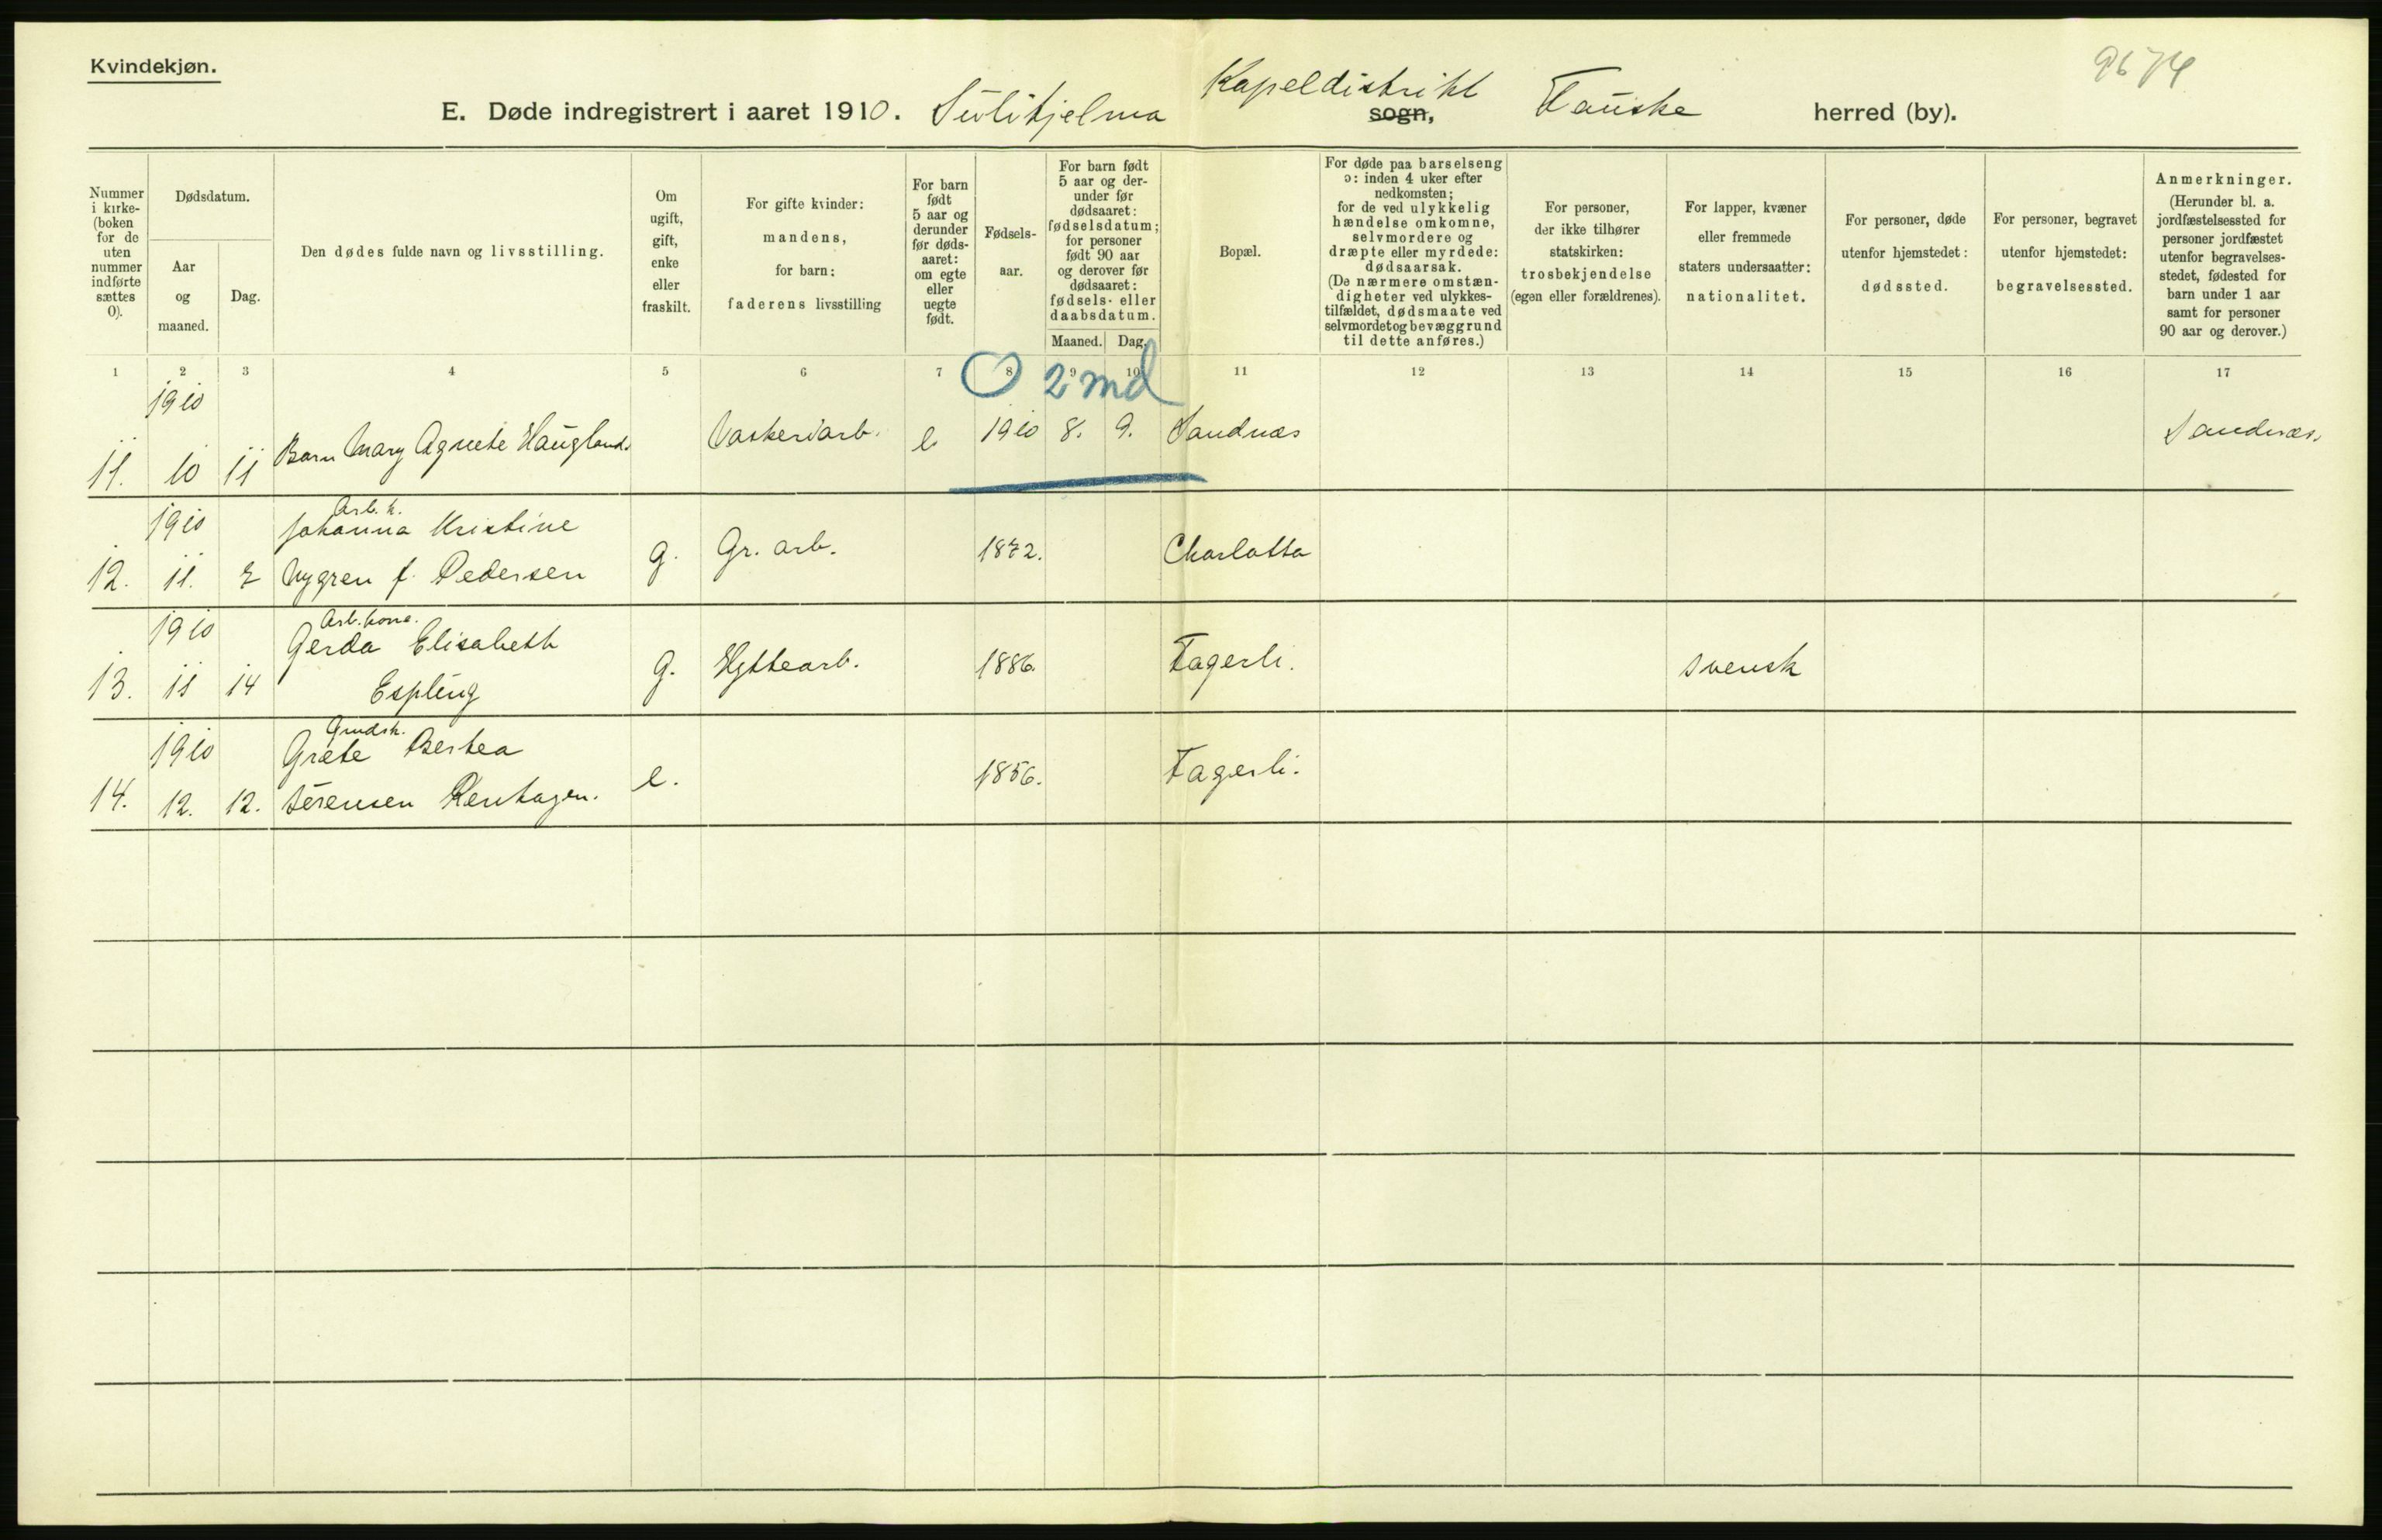 Kvindekjøn.
9674
E. Døde indregistrert i aaret 1910. Sulitjelma Kapeldistrikt sogn, Fauske herred (by).
Nummer i kirke- (boken for de uten nummer indførte sættes 0).
Dødsdatum.
Aar og maaned.
Dag.
Den dødes fulde navn og livsstilling.
Om ugift, gift, enke eller fraskilt.
For gifte kvinder: mandens, for barn: faderens livsstilling
For barn født 5 aar og derunder før døds- aaret: om egte eller uegte født.
Fødsels- aar.
For barn født 5 aar og der- under før dødsaaret: fødselsdatum; for personer født 90 aar og derover før dødsaaret: fødsels- eller daabsdatum.
Maaned. Dag.
Bopæl.
For døde paa barselseng ɔ: inden 4 uker efter nedkomsten; for de ved ulykkelig hændelse omkomne, selvmordere og dræpte eller myrdede: dødsaarsak. (De nærmere omstæn- digheter ved ulykkes- tilfældet, dødsmaate ved selvmordet og bevæggrund til dette anføres.)
For personer, der ikke tilhører statskirken: trosbekjendelse (egen eller forældrenes).
For lapper, kvæner eller fremmede staters undersaatter: nationalitet.
For personer, døde utenfor hjemstedet: dødssted.
For personer, begravet utenfor hjemstedet: begravelsessted.
Anmerkninger. (Herunder bl. a. jordfæstelsessted for personer jordfæstet utenfor begravelses- stedet, fødested for barn under 1 aar samt for personer 90 aar og derover.)
1 2 3 4 5 6 7 8 9 10 11 12 13 14 15 16 17
O 2 md
1910
11. 10 11 Barn Mary Agnete Haugland. Vaskeriarb. e. 1910 8. 9. Sandnæs Sandnæs.
1910 Arb. k.
Johanna Kristine
12. 11. 2 Nygren f. Pedersen g. Gr. arb. 1872. Charlotta
1910 Arb. kone.
Gerda Elisabeth
13. 11 14 Espling g. Hyttearb. 1886. Fagerli. svensk
1910
Græte Bertea
14. 12. 12. Sørensen e. 1856. Fagerli.